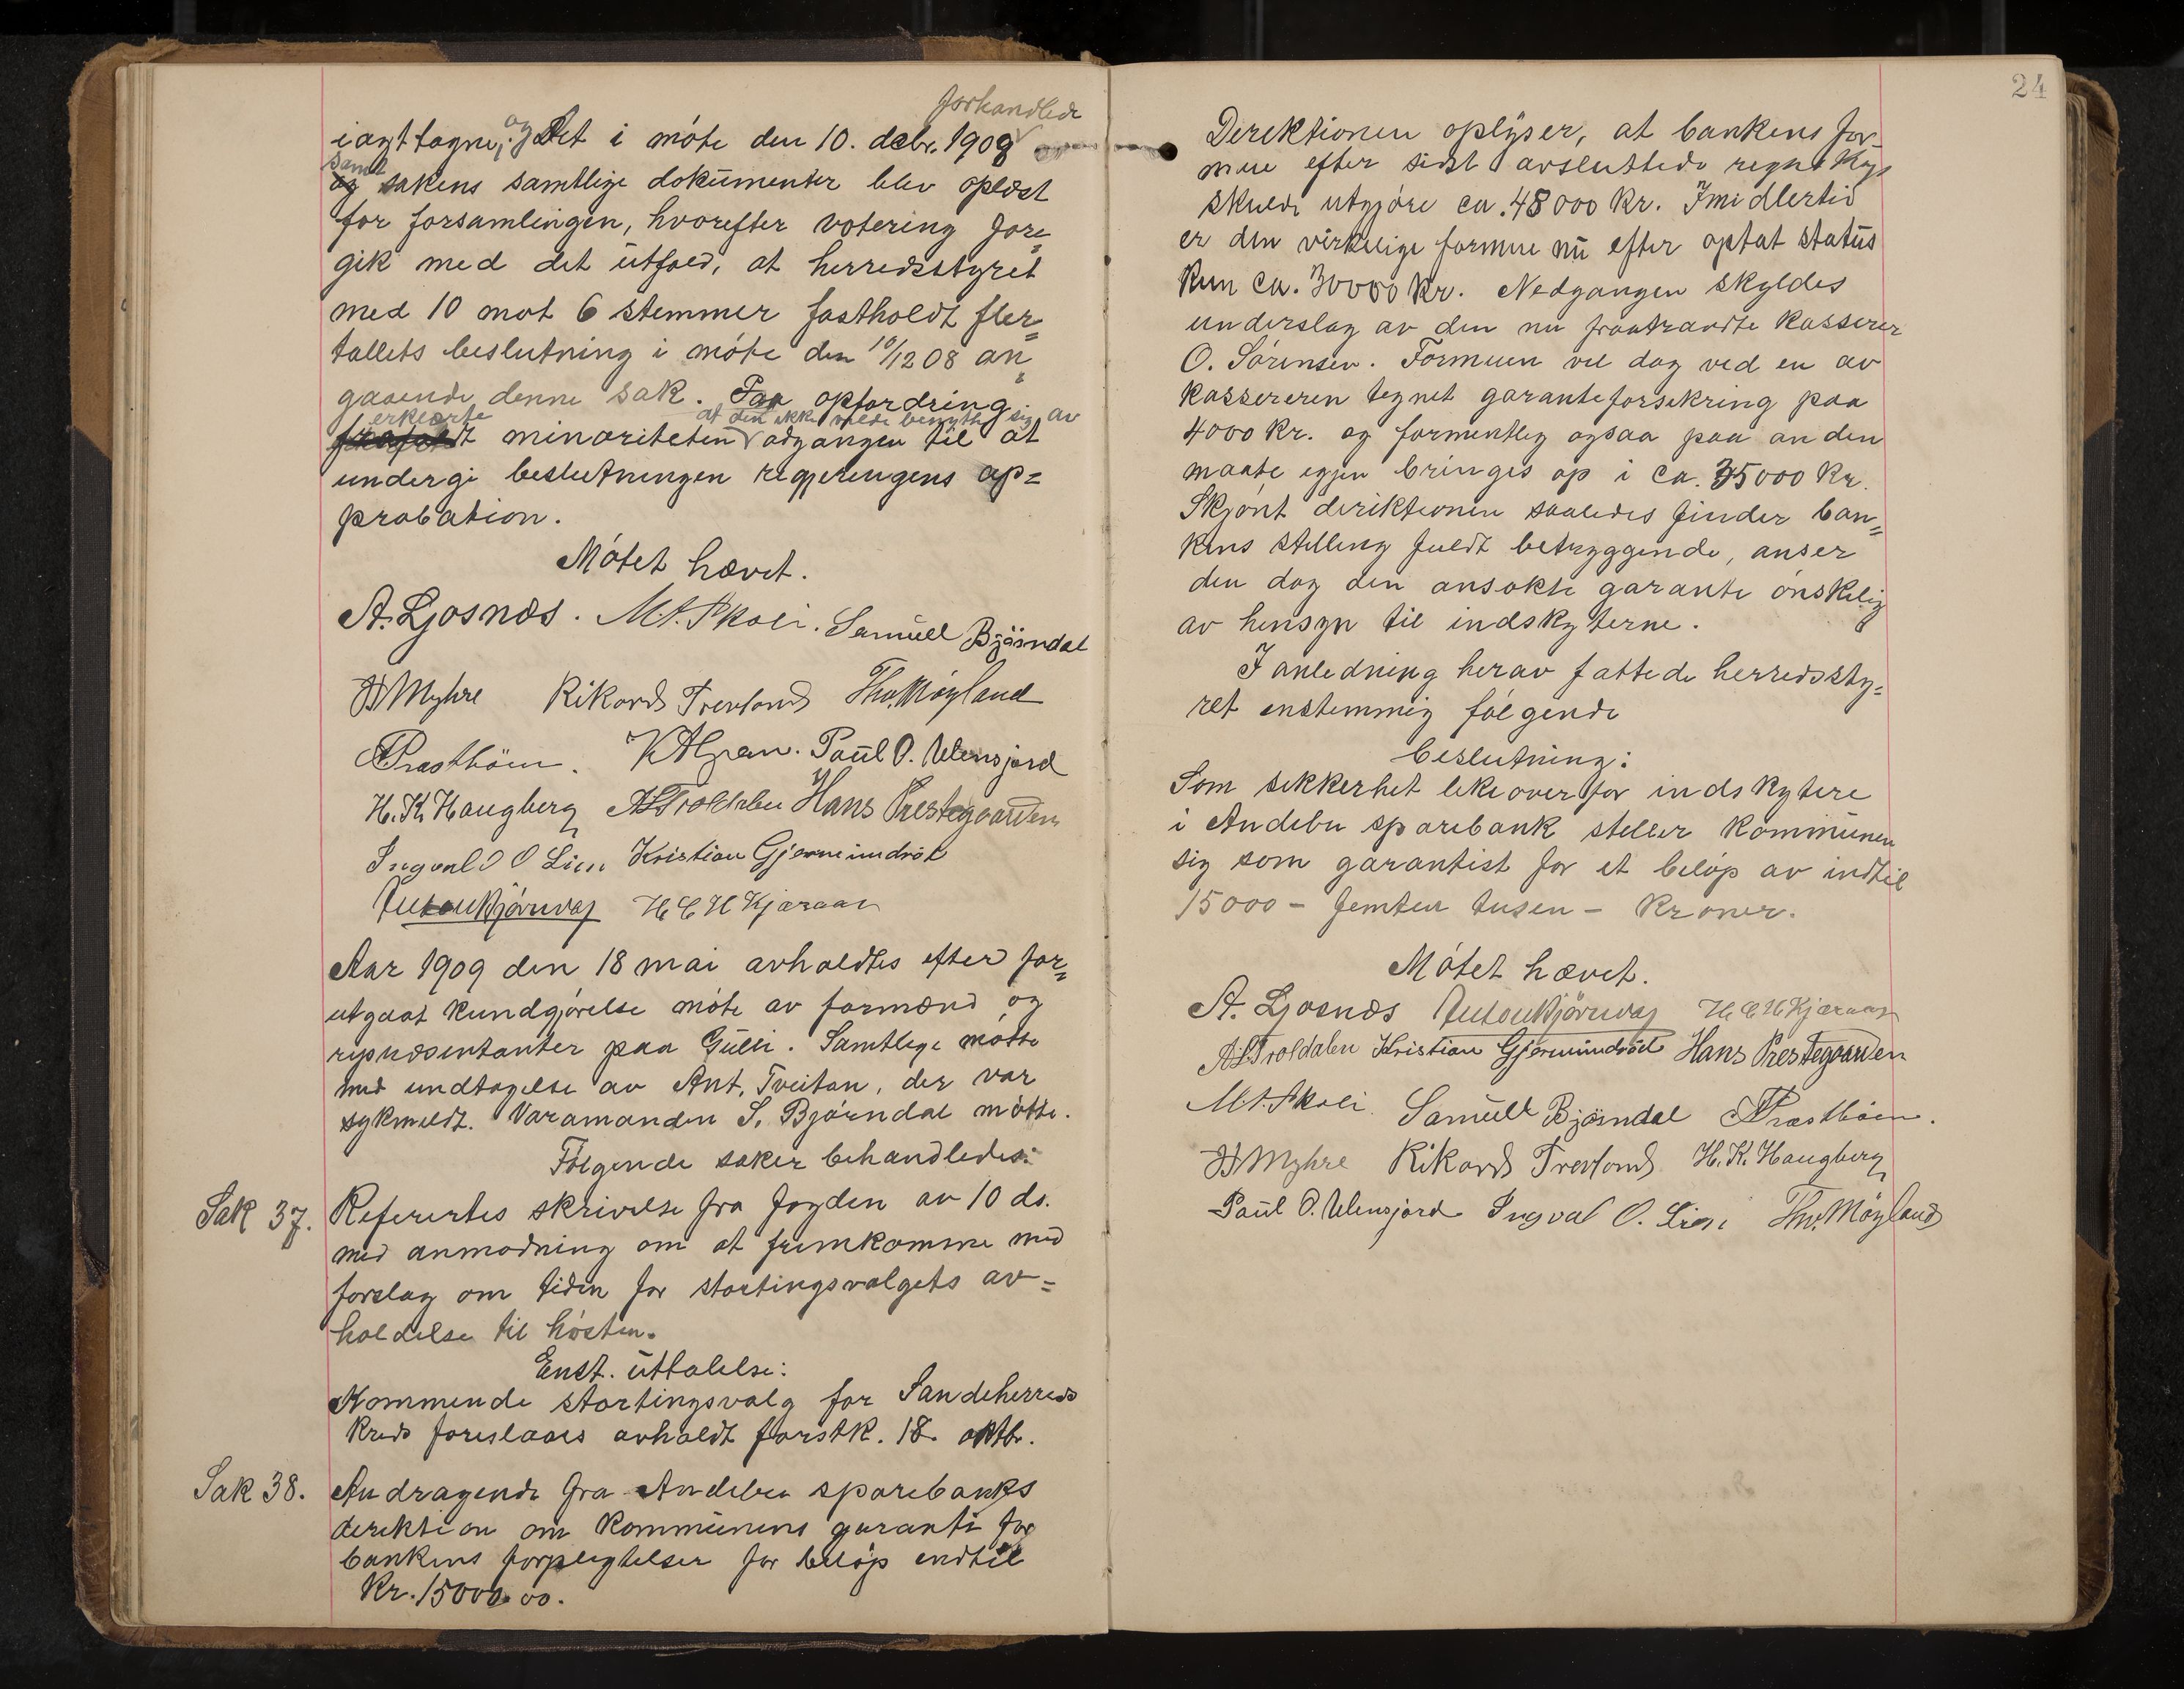 forhandlede
iagttagne, og Det i møte den 10. decbr. 1908
samt
og sakens samtlige dokumenter blev oplæst
for forsamlingen, hvorefter votering fore=
gik med det utfald, at herredsstyret
med 10 mot 6 stemmer fastholdt fler=
tallets beslutning i møte den 10/12 08 an=
gaaende denne sak. Paa opfordring
erklærte at den ikke vilde benytte sig av
minoriteten adgangen til at
undergi beslutningen regjeringens ap=
probation.
Møtet hævet.
A. Ljosnæs. M.A. Skoli. Samuell Bjørndal
Myhre Rikard Trevland Tho. Møyland
Præstbøen. Paul O. Ulensjord
H. K. Haugberg A L Troldalen Hans Prestegaarden
Ingvald O Lien Kristian Gjermundrød
Anton Bjørndal H C H Kjæraas
Aar 1909 den 18 mai avholdtes efter for=
utgaat kundgjørelse møte av formænd og
repræsentanter paa Gulli. Samtlige møtte
med undtagelse av Ant. Tveitan, der var
sykmeldt. Varamanden S. Bjørndal møtte.
Følgende saker behandledes:
Sak 37. Referertes skrivelse fra fogden av 10 ds.
med anmodning om at fremkomme med
forslag om tiden for stortingsvalgets av=
holdelse til høsten.
Enst. uttalelse:
Kommende stortingsvalg for Sandeherreds
kreds foreslaaes avholdt førstk. 18. oktb.
Sak 38. Andragende fra Andebu sparebanks
direktion om kommunens garanti for
bankens forpligtelser for beløp indtil
Kr. 15000.00.
24
Direktionen oplyser, at bankens for=
mue efter sidst avsluttede regnskap
skulde utgjøre ca. 48000 kr. Imidlertid
er den virkelige formue nu efter optat status
kun ca. 30000 kr. Nedgangen skyldes
underslag av den nu fratraadte kasserer
O. Sørensen. Formuen vil dog ved en av
kassereren tegnet garantiforsikring paa
4000 kr. og formentlig ogsaa paa anden
maate igjen bringes op i ca. 35000 kr.
Skjønt direktionen saaledes finder ban=
kens stilling fuldt betryggende, anser
den dog den ansøkte garanti ønskelig
av hensyn til indskyterne.
I anledning herav fattede herredssty=
ret enstemmig følgende
beslutning:
Som sikkerhet likeoverfor indskytere
i Andebu sparebank stiller kommunen
sig som garantist for et beløp av indtil
15000 - femten tusen - kroner.
Møtet hævet.
A. Ljosnæs Anton Bjørndal H C H Kjæraas
A L Troldalen Kristian Gjermundrød Hans Prestegaarden
M.A. Skoli. Samuell Bjørndal Præstbøen.
Myhre Rikard Trevland H. K. Haugberg
Paul O. Ulensjord Ingvald O. Lien Tho. Møyland